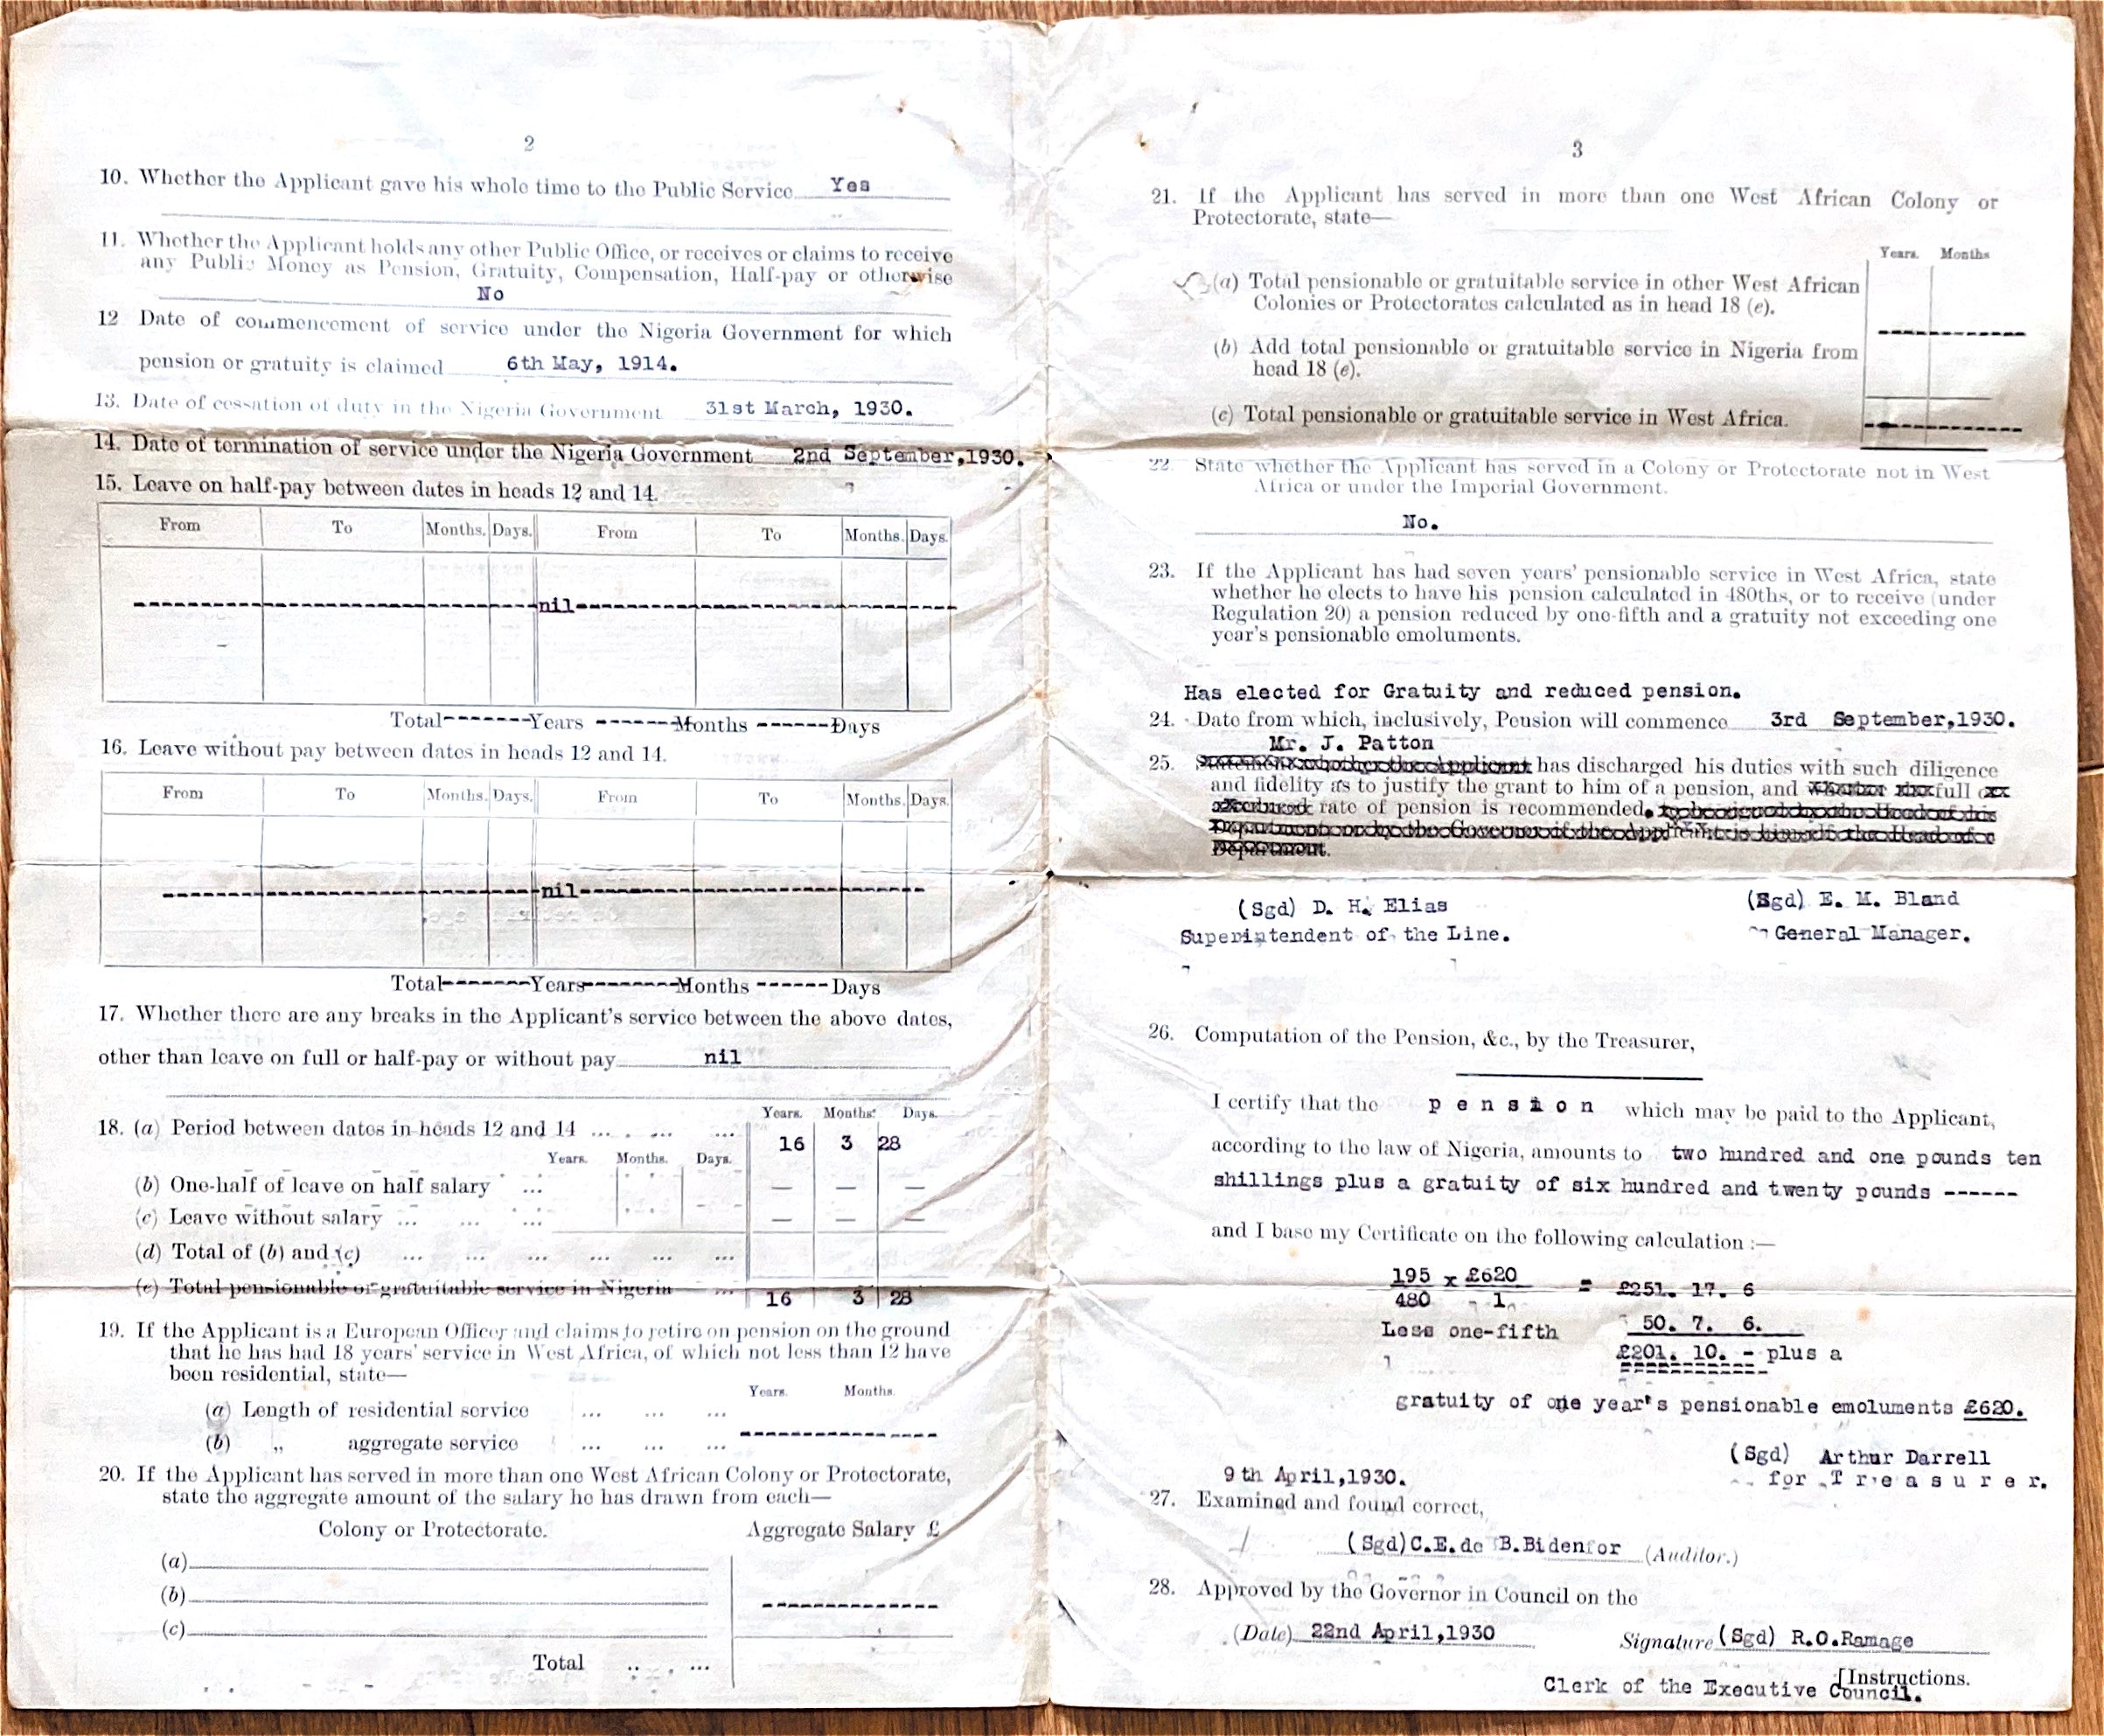 2
10. Whether the Applicant gave his whole time to the Public Service Yes
11. Whether the Applicant holds any other Public Office, or receives or claims to receive
any Public Money as Pension, Gratuity, Compensation, Half-pay or otherwise
No
12 Date of commencement of service under the Nigeria Government for which
pension or gratuity is claimed 6th May, 1914.
13. Date of cessation of duty in the Nigeria Government 31st March, 1930.
14. Date of termination of service under the Nigeria Government 2nd September,1930.
15. Leave on half-pay between dates in heads 12 and 14.
From To Months. Days. From To Months. Days.
nil
Total-------Years ------Months ------Days
16. Leave without pay between dates in heads 12 and 14.
From To Months. Days. From To Months. Days.
nil
Total-------Years-------Months ------Days
17. Whether there are any breaks in the Applicant's service between the above dates,
other than leave on full or half-pay or without pay nil
Years. Months. Days.
18. (a) Period between dates in heads 12 and 14 ... ... ... 16 3 28
Years. Months. Days.
(b) One-half of leave on half salary ... — — —
(c) Leave without salary ... ... ... — — —
(d) Total of (b) and (c) ... ... ... ... ... ...
(e) Total pensionable or gratuitable service in Nigeria ... 16 3 28
19. If the Applicant is a European Officer and claims to retire on pension on the ground
that he has had 18 years' service in West Africa, of which not less than 12 have
been residential, state—
Years. Months.
(a) Length of residential service ... ... ...
(b) „ aggregate service ... ... ...
20. If the Applicant has served in more than one West African Colony or Protectorate,
state the aggregate amount of the salary he has drawn from each—
Colony or Protectorate. Aggregate Salary £
(a)
(b)
(c)
Total .. ... ...
3
21. If the Applicant has served in more than one West African Colony or
Protectorate, state—
Years. Months
(a) Total pensionable or gratuitable service in other West African
Colonies or Protectorates calculated as in head 18 (e).
(b) Add total pensionable or gratuitable service in Nigeria from
head 18 (e).
(c) Total pensionable or gratuitable service in West Africa.
22. State whether the Applicant has served in a Colony or Protectorate not in West
Africa or under the Imperial Government.
No.
23. If the Applicant has had seven years' pensionable service in West Africa, state
whether he elects to have his pension calculated in 480ths, or to receive (under
Regulation 20) a pension reduced by one-fifth and a gratuity not exceeding one
year's pensionable emoluments.
Has elected for Gratuity and reduced pension.
24. Date from which, inclusively, Pension will commence 3rd September,1930.
Mr. J. Patton
25. has discharged his duties with such diligence
and fidelity as to justify the grant to him of a pension, and full
rate of pension is recommended.
Department.
(Sgd) D. H. Elias (Sgd) E. M. Bland
Superintendent of the Line. General Manager.
26. Computation of the Pension, &c., by the Treasurer,
I certify that the pension which may be paid to the Applicant,
according to the law of Nigeria, amounts to two hundred and one pounds ten
shillings plus a gratuity of six hundred and twenty pounds ------
and I base my Certificate on the following calculation :—
195 x £620 = £251. 17. 6
480 1
Less one-fifth 50. 7. 6.
£201. 10. - plus a
gratuity of one year's pensionable emoluments £620.
(Sgd) Arthur Darrell
9th April,1930. for Treasurer.
27. Examined and found correct,
(Sgd)C.E.de B.Bidenfor (Auditor.)
28. Approved by the Governor in Council on the
(Date) 22nd April,1930 Signature (Sgd) R.O.Ramage
[Instructions.
Clerk of the Executive Council.